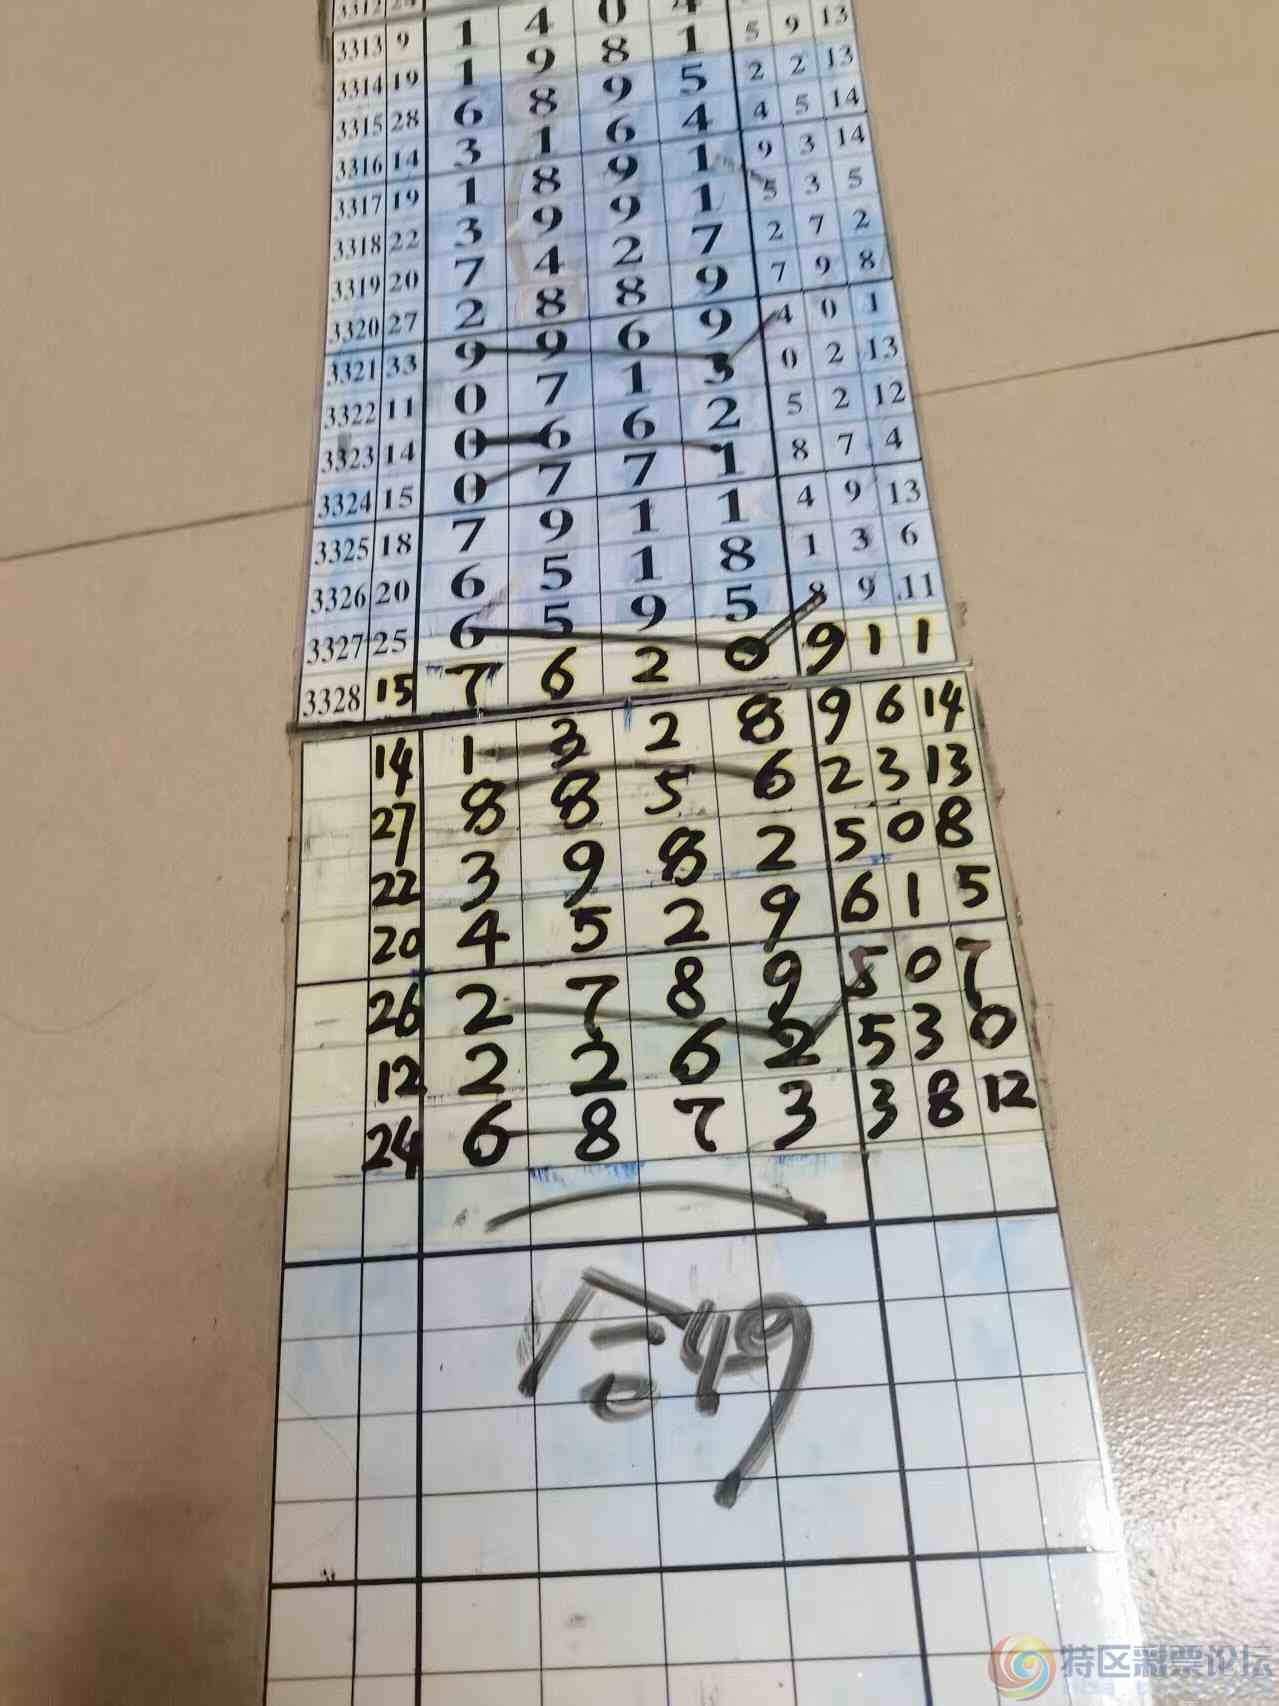 3312 24
3313 9 1 4 0 4
3314 19 1 9 8 1 5 9 13
3315 28 6 8 9 5 2 2 13
3316 14 3 1 6 4 4 5 14
3317 19 1 8 9 1 9 3 14
3318 22 3 9 9 1 5 3 5
3319 20 7 4 2 7 2 7 2
3320 27 2 8 8 9 7 9 8
3321 33 9 9 6 9 4 0 1
3322 11 0 7 1 3 0 2 13
3323 14 0 6 6 2 5 2 12
3324 15 0 7 7 1 8 7 4
3325 18 7 9 1 1 4 9 13
3326 20 6 5 1 8 1 3 6
3327 25 6 5 9 5 8 9 11
3328 15 7 6 2 0 9 1 1
14 1 3 2 8 9 6 14
27 8 8 5 6 2 3 13
22 3 9 8 2 5 0 8
20 4 5 2 9 6 1 5
26 2 7 8 9 5 0 7
12 2 2 6 2 5 3 0
24 6 8 7 3 3 8 12
49
特区彩票论坛